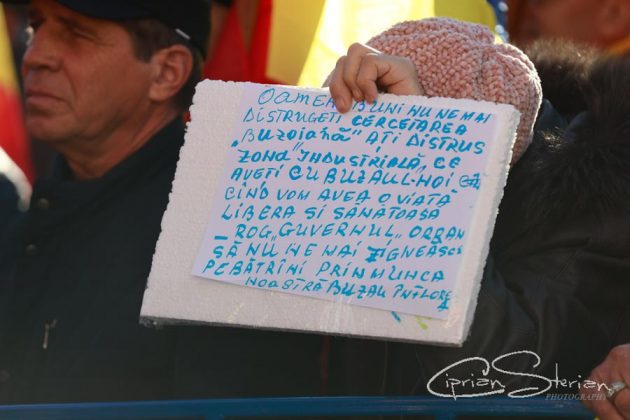 OAMENI BUNI NU NE MAI
DISTRUGEȚI CERCETAREA
„BUZOIANĂ” AȚI DISTRUS
ZONA „INDUSTRIALĂ”, CE
AVEȚI CU BUZĂUL-HOI
CÎND VOM AVEA O VIAȚĂ
LIBERA SI SĂNĂTOASA
- ROG „GUVERNUL” ORBAN
SĂ NU NE MAI JIGNEASCĂ
PE BĂTRÎNI PRIN MUNCA
NOASTRĂ BUZAU ÎNFLORE
Ciprian Sterian
PHOTOGRAPHY